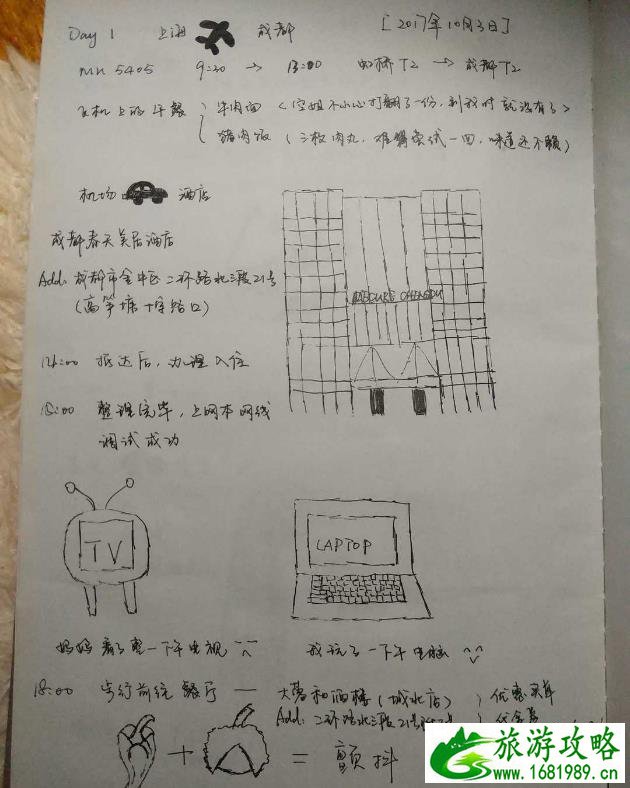 Day 1 上海 成都 [2017年10月3日]
MU 5405 9:30 → 13:00 虹桥T2 → 成都T2
飞机上的午餐 牛肉面 <空姐不小心打翻了一份,到我时就没有了>
猪肉饭 (三枚肉丸,难得尝试一回,味道还不赖)
机场 酒店
成都春天美居酒店
Add: 成都市金牛区二环路北三段21号
(高笋塘十字路口)
MERCURE CHENGDU
14:00 抵达后,办理入住
15:00 整理完毕,上网本网线
调试成功
TV
LAPTOP
妈妈看了整一下午电视 ^^
我玩了一下午电脑
18:00 步行前往餐厅 — 大蓉和酒楼(城北店) 优惠买单
Add: 二环路北三段21号 代金券
+ = 颤抖
旅游攻略
www.1681989.cn